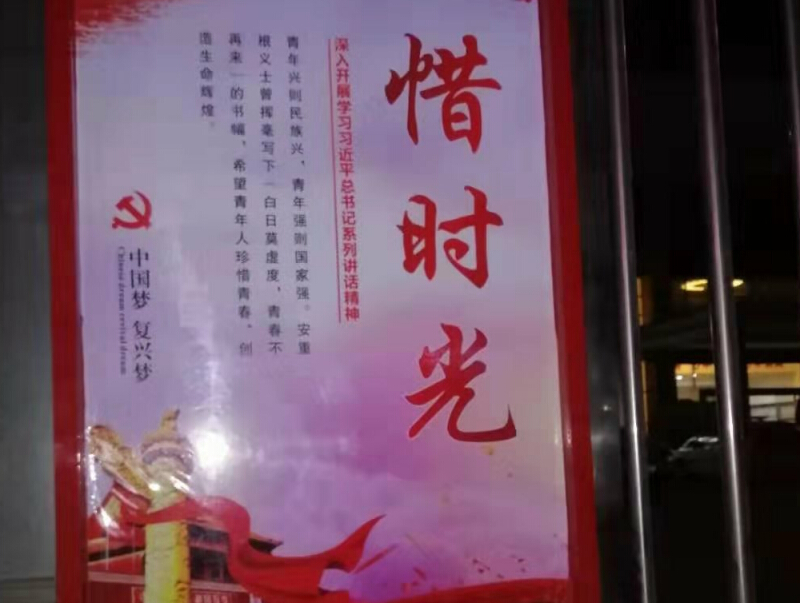 惜时光
深入开展学习习近平总书记系列讲话精神
青年兴则民族兴，青年强则国家强。安重
根义士曾挥毫写下一白日莫虚度，青春不
再来一的书幅，希望青年人珍惜青春，创
造生命辉煌。
中国梦 复兴梦
Chinese dream revival dream